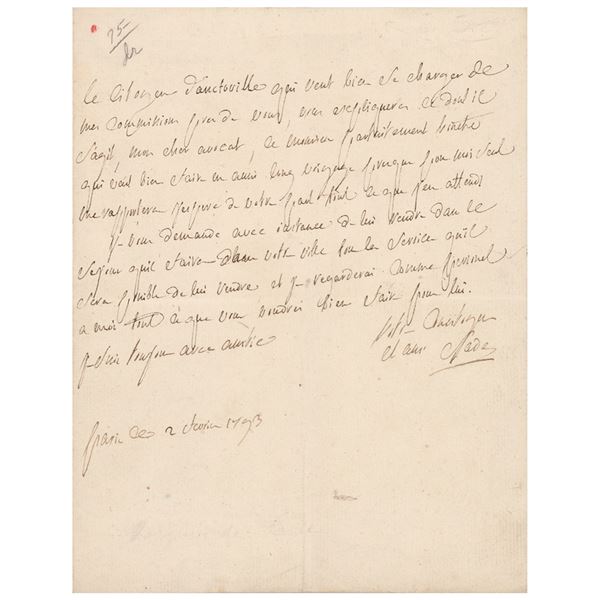 25-
Le Citoyen Danctoville qui veut bien se charger de
mes commissions pres de vous, vous expliquera ce dont il
s'agit, mon cher avocat, ce monsieur parfaitement honnête
qui veut bien faire en ami long voyage presque pour moi seul
me rapportera j'espere de votre part tout ce que j'en attends
je vous demande avec instance de lui rendre dans le
sejour qu'il faira dans votre ville tous les services qu'il
sera possible de lui rendre et je regarderai comme personel
a moi tout ce que vous voudrés bien faire pour lui.
je suis toujours avec amitié
votre concitoyen
et ami Sade
paris ce 2 fevrier 1793